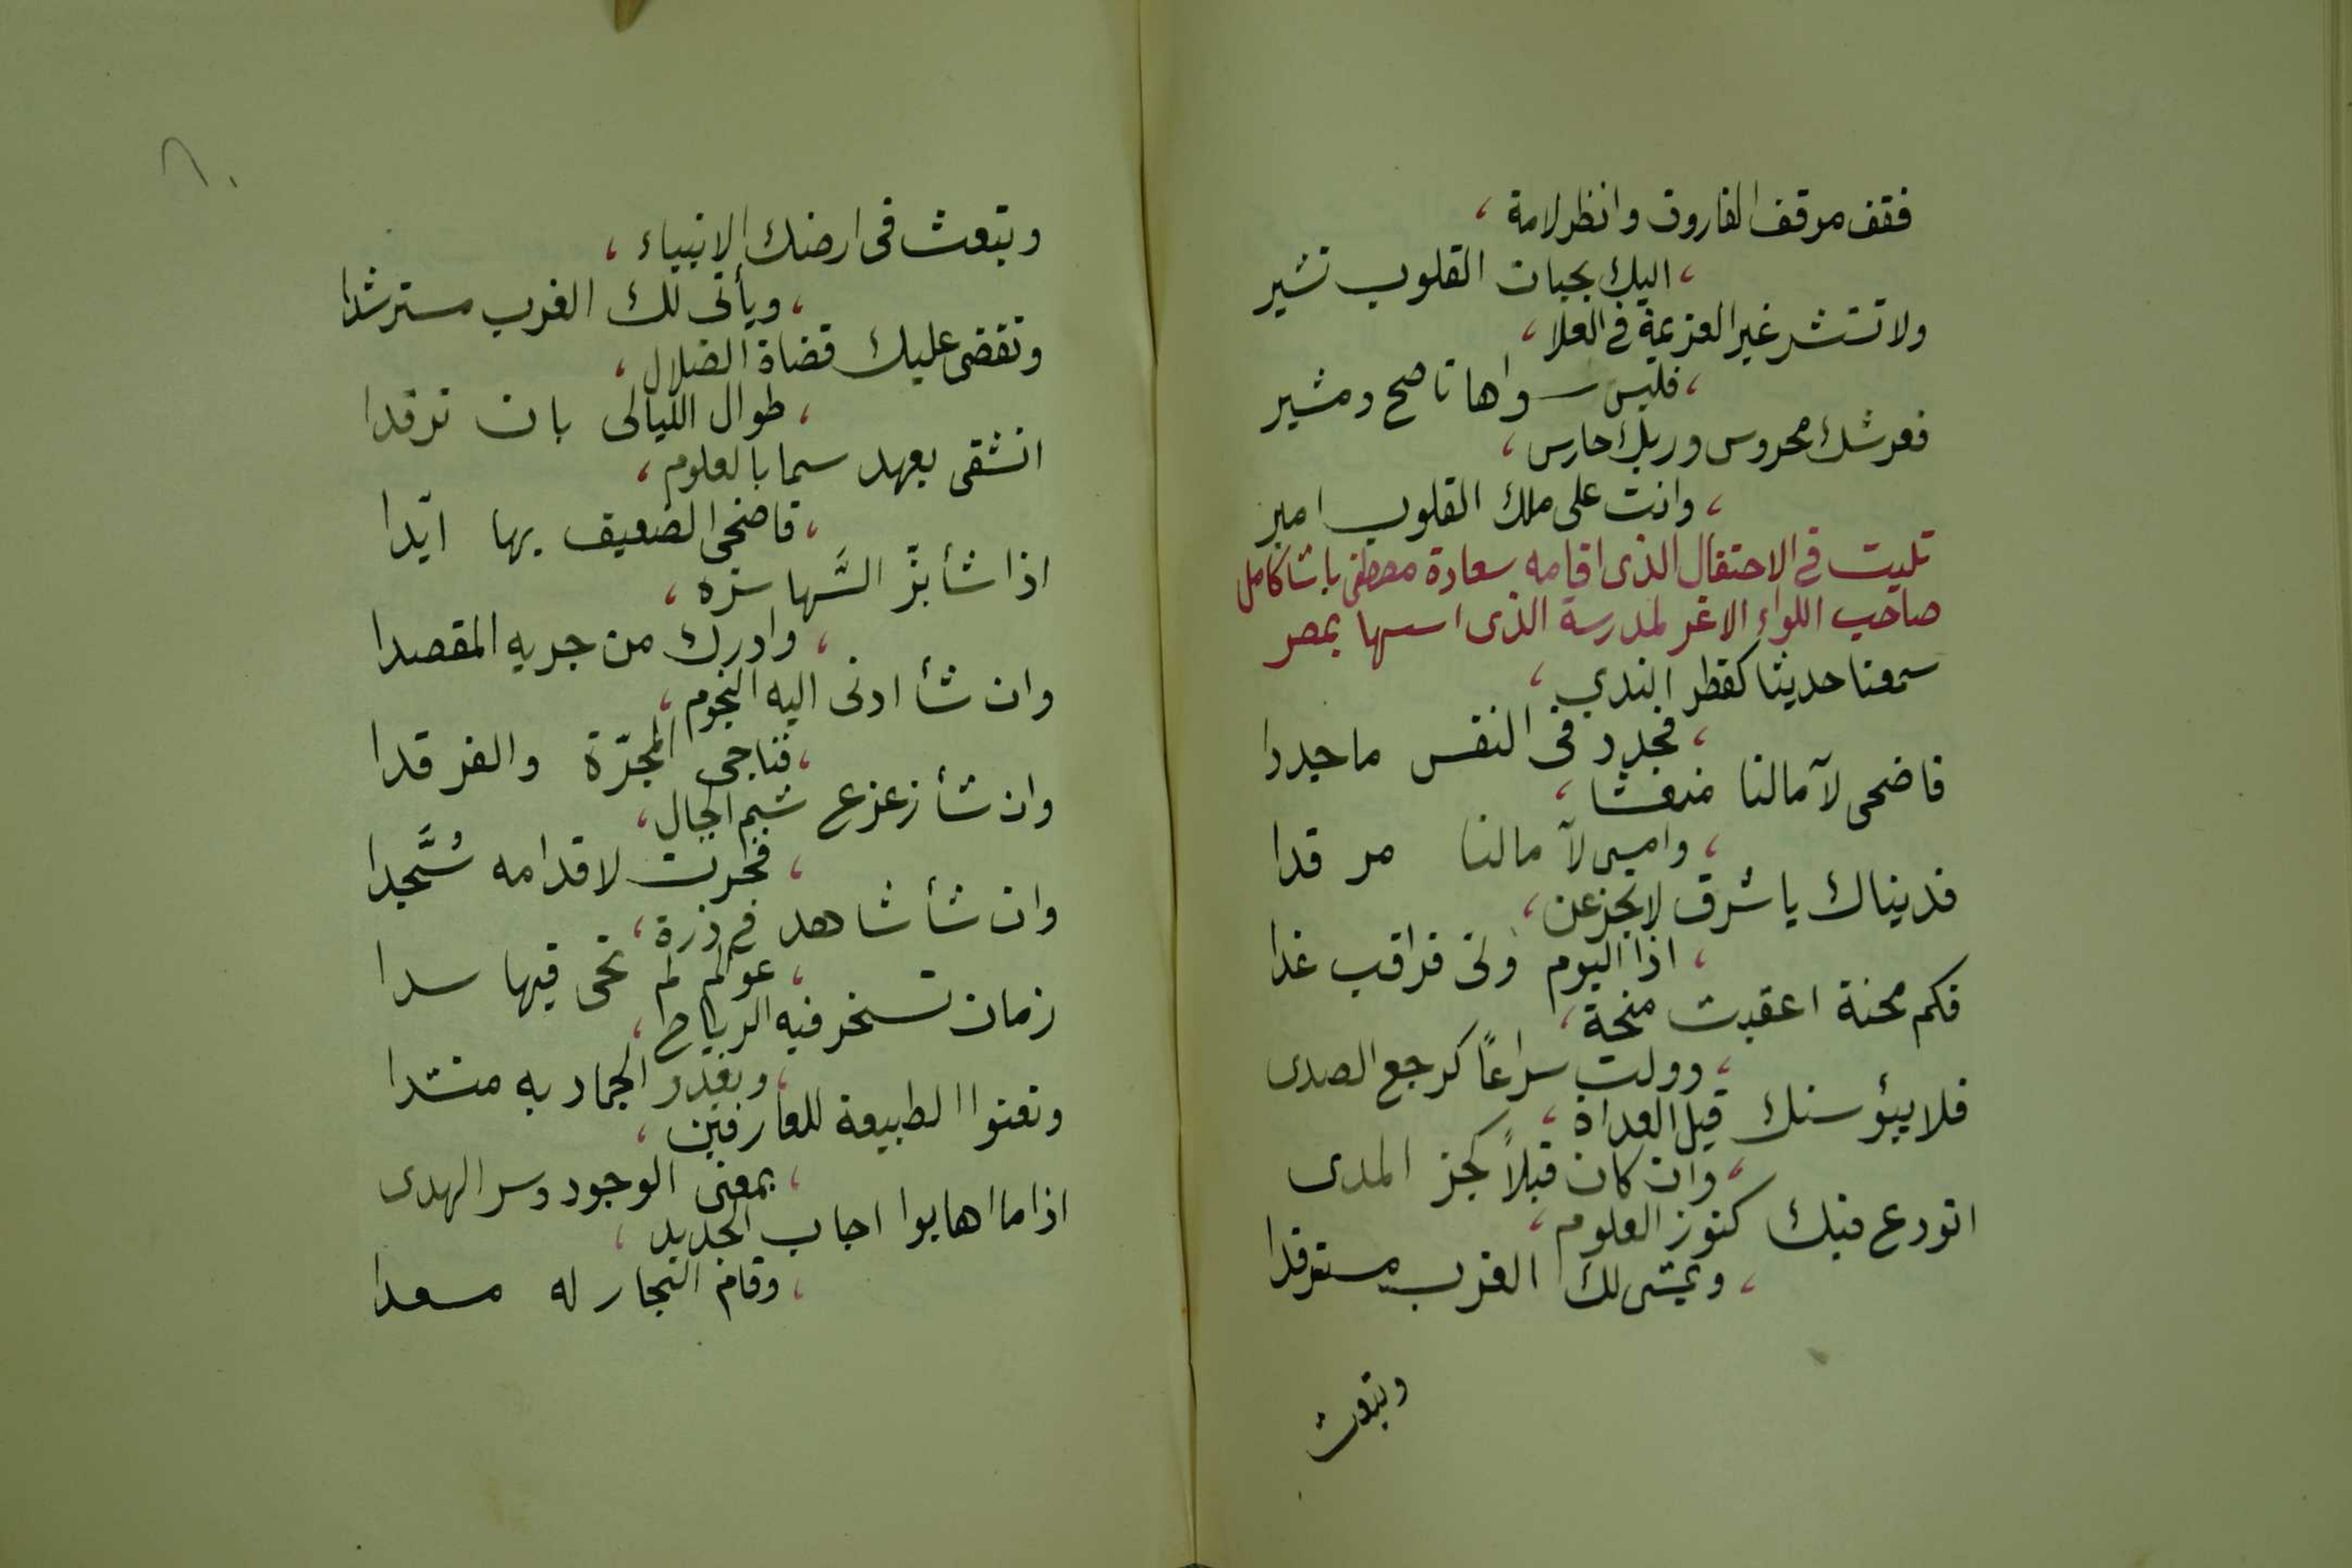 فقف موقف الفاروق وانظر لامة ،
، اليك بحبات القلوب تشير
ولا تستشر غير العزيمة فى العلا ،
، فليس سواها ناصح ومشير
فعرشك محروس وربك حارس ،
، وانت على ملك القلوب امير
تليت فى الاحتفال الذى اقامه سعادة مصطفى باشا كامل
صاحب اللواء الاغر لمدرسة الذى اسسها بمصر
سمعنا حديثا كقطر الندي ،
، فجدد فى النفس ما جيددا
فاضحى لآمالنا منعشا ،
، وامسى لآمالنا مرقدا
فديناك يا شرق لا تجزعن ،
، اذا اليوم ولى فراقب غدا
فكم محنة اعقبت منحة ،
، وولت سراعًا كرجع الصدى
فلا ييؤسنك قيل العداة ،
، وان كان قيلاً كحز المدى
اتودع فيك كنوز العلوم ،
، ويمشى لك الغرب مسترفدا
وتبعث
٦٠
وتبعث فى ارضك الانبياء ،
، ويأتى لك الغرب مسترشدا
وتقضى عليك قضاة الضلال ،
، طوال الليالى بان ترقدا
اتشقى بعهد سما بالعلوم ،
، فاضحى الضعيف بها ايّدا
اذا شأ بزّ السُّها سره ،
، وادرك من جريه المقصدا
وان شأ ادنى اليه النجوم ،
، فناجى المجرّة والفرقدا
وان شأ زعزع شم الجبال ،
، فخرت لاقدامه سُجَّدا
وان شأ شاهد فى ذرة ،
، عوالم لم تحى فيها سدا
زمان تسخر فيه الرياح ،
، ويغدو الجماد به منشدا
وتعنوا الطبيعة للعارفين ،
، بمعنى الوجود وسر الهدى
اذا ما اهابوا اجاب الحديد ،
، وقام البخار له مسعدا